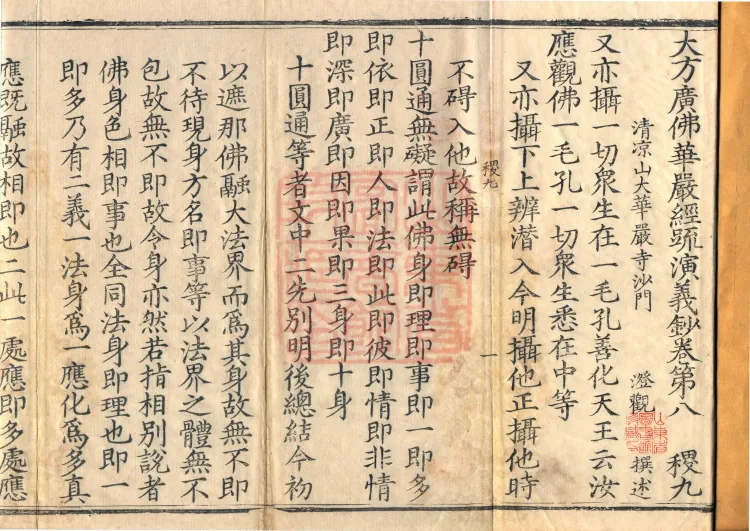 大方廣佛華嚴經疏演義鈔卷第八 稷九
清涼山大華嚴寺沙門 澄觀 撰述
又亦攝一切衆生在一毛孔善化天王云汝
應觀佛一毛孔一切衆生悉在中等
又亦攝下上辨潜入今明攝他正攝他時
稷九 一
不碍入他故稱無碍
十圓通無礙謂此佛身即理即事即一即多
即依即正即人即法即此即彼即情即非情
即深即廣即因即果即三身即十身
十圓通等者文中二先別明後總結今初
以遮那佛融大法界而爲其身故無不即
不待現身方名即事等以法界之體無不
包故無不即故令身亦然若指相別說者
佛身色相即事也全同法身即理也即一
即多乃有二義一法身爲一應化爲多真
應既融故相即也二此一處應即多處應